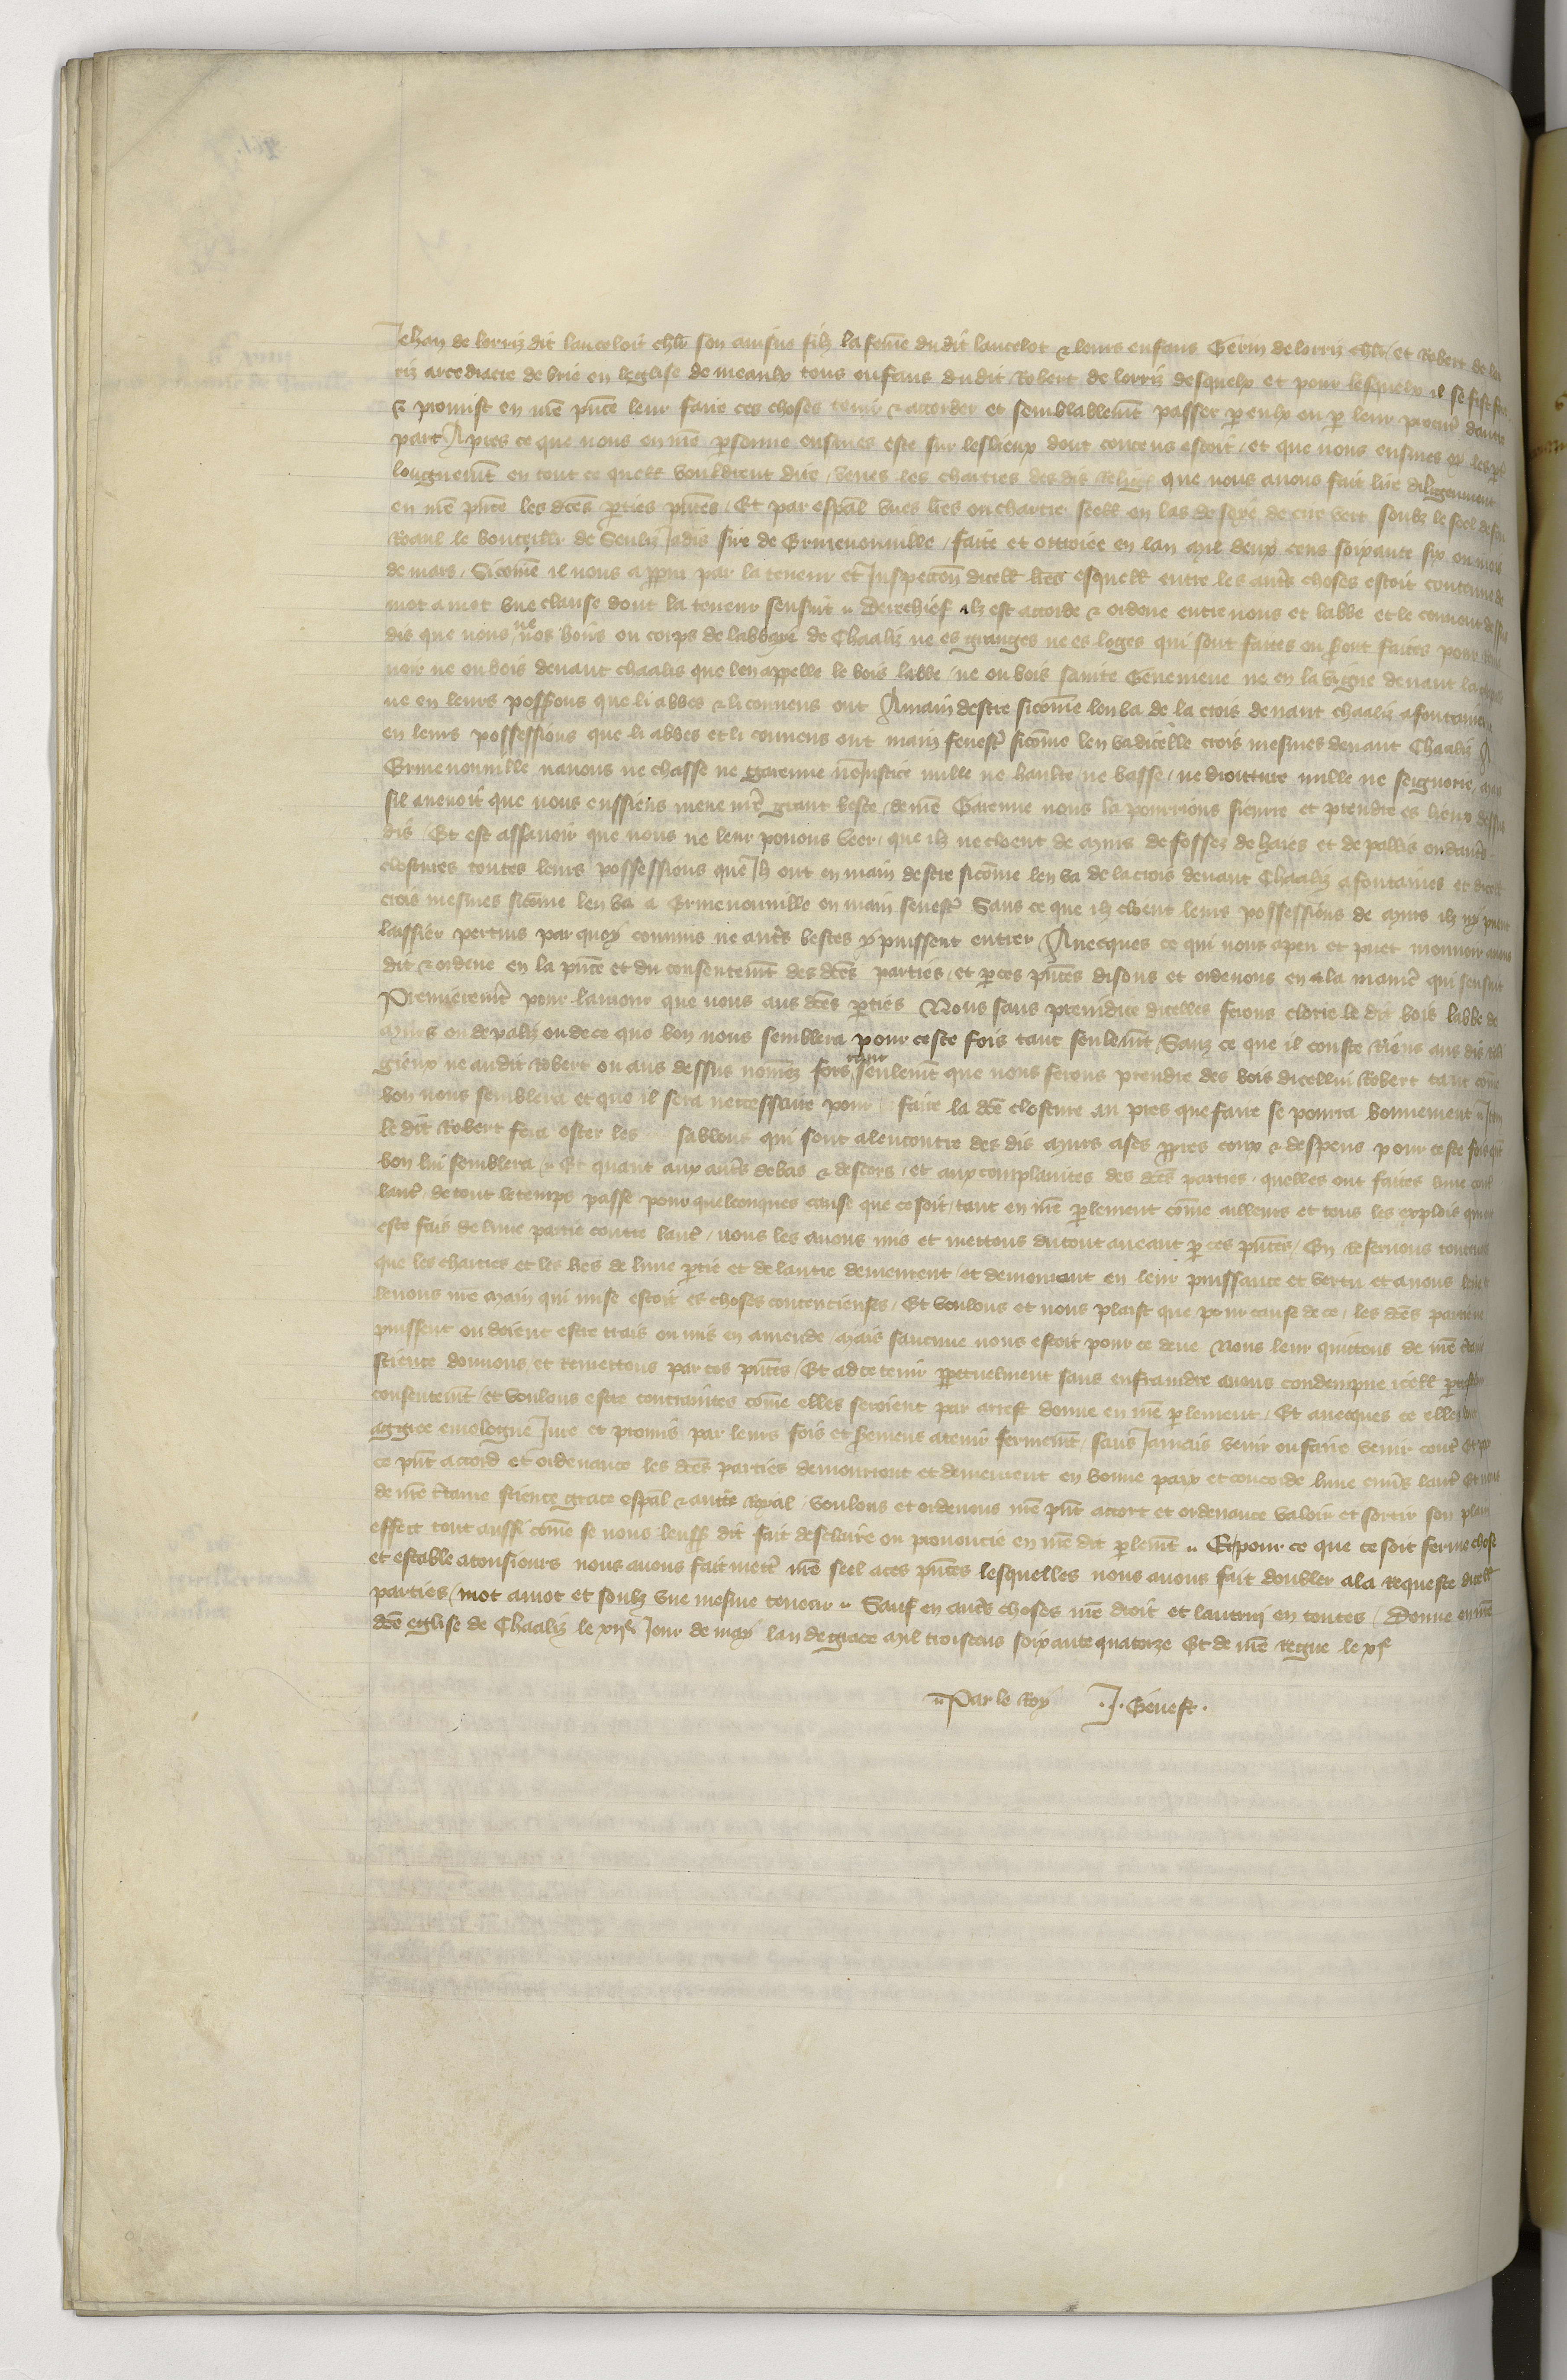 Jehan de lorriz dit lanceloit chlr son ainsne filz la feme du dit lancelot & leurs enfans Gerin de lorriz chlr / et Robert de lor
riz arcediacre de brie en leglise de meaulx tous enfans du dit Robert de lorriz desquelx et pour lesquelx il se fist fort
& promist en nre pnce leur faire ces choses tenir & accorder et semblablemt passer p eulx ou p leur procur dautre
part Apres ce que nous en nre psonne eusmes este sur les lieux dont contens estoit / et que nous eusmes oy les pties
longuemt en tout ce quelles vouldrent dire / veues les chartres des dis Religx que nous avons fait lire diligenment
en nre pnce les dces pties pntes / Et par espal unes lres ou chartre seell en las de soye de cire vert soubz le seel de feu
Raoul le bouteillr de Senliz Jadis sire de Ermenonuille / faite et ottroiee en lan mil deux cens soixante six ou mois
de mars / Sicome il nous apparu par la teneur et Inspeccion dicell lres esquell entre les autres choses estoit contenue de
mot a mot une clause dont la teneur sensuit .. Derechief il est accorde & ordene entre nous et labbe et le convent dessus
dis que nous ne nos hoirs ou corps de labbaye de Chaaliz ne es granges ne es loges qui sont faites ou seront faites pour
noir ne ou bois devant chaalis que len appelle le bois labbe / ne ou bois sainte Geneuieue ne en la vigne devant la
ne en leurs possessions que li abbes & li convens ont A main destre sicome len va de la crois devant chaaliz a fontaines
en leurs possessions que li abbes et li convens ont main senestr sicome len va dicelle crois mesmes devant Chaaliz A
Ermenonuille navons ne chasse ne garenne ne Justice nulle ne haulte / ne basse / ne droitture nulle ne seignorie / mais
sil avenoit que nous eussiens mene nre grant beste / de nre Garenne nous la pourrions sieurre et prendre es lieux dessus
dis / Et est assavoir que nous ne leur povons veer / que ilz ne cloent de murs de fossez de haies et de palliz ou dautrs
clostures toutes leurs possessions que Ilz ont en main destre sicome len va de la crois devant Chaaliz a fontaines et dicell
crois mesmes sicome len va a Ermenonuille en main senestr Sans ce que ilz cloent leurs possessions de murs ilz ny pueent
laissier pertuis par quoy connins ne autres bestes y puissent entrer / Avecques ce qui nous a peu et puet mouvoir avons
dit & ordene en la pnce et du consentemt des dces parties / et p ces pntes disons et ordenons en la manie qui sensuit
Premieremt pour lamour que nous aus dces pties Nous sans preiudice dicelles ferons clorre le dit bois labbe de
murs ou de paliz ou de ce que bon nous semblera pour ceste fois tant seulemt / Sanz ce que il couste riens aus dis reli
gieux ne au dit Robert ou aus dessus nomez fors tant seulemt que nous ferons prendre des bois dicellui Robert tant come
bon nous semblera et que il sera necessaire pour faire la dce closture au pres que faire se pourra bonnement .. Item
le dit Robert fera oster les sablons qui sont alencontre des dis murs a ses ppres coux & despens pour ceste fois que
bon lui semblera .. Et quant aux autres debas & descors / et aux complaintes des dces parties / quelles ont faites lune contre
lautr de tout le temps passe pour quelconques cause que ce soit / tant en nre plement come ailleurs et tous les explois qui ont
este fais de lune partie contre lautr / nous les avons mis et mettons du tout au neant p ces pntes / En reservons toutevoies
que les chartres et les lres de lune ptie et de lautre demeurent / et demourront en leur puissance et vertu et avons leve et
levons nre main qui mise estoit es choses contencieuses / Et voulons et nous plaist que pour cause de ce / les dces parties ne
puissent ou doient estre trais ou mis en amende / mais saucune nous estoit pour ce deue Nous leur quittons de nre certaine
science donnons et remettons par ces pntes / Et ad ce tenir ppetuelment sans enfraindre avons condempne icell pties de leur
consentemt / et voulons estre contraintes come elles seroient par arrest donne en nre plement / Et avecques ce elles ont
aggree emologue Jure et promis par leurs fois et seremens a tenir fermemt / sans Jamais venir ou faire venir contr Et par
ce pnt accord et ordenance les dces parties demourront et demeurent en bonne paix et concorde lune envrs lautr Et nous
de nre certaine science grace espal & auttte Royal / voulons et ordenons nre pnt accort et ordenance valoir et sortir son plain
effect tout aussi come se nous leussions dit fait desclaire ou prononcie en nre dit plemt .. Et pour ce que ce soit ferme chose
et estable a tousiours nous avons fait mettr nre seel a ces pntes lesquelles nous avons fait doubler a la requeste dicell
parties / mot a mot et soubz une mesme teneur .. Sauf en autrs choses nre droit et lautruy en toutes / Donne en nre
dce eglise de Chaaliz le xiije Jour de may lan de grace mil troiscens soixante quatorze Et de nre regne le xje
.. Par le Roy .J. Genest.